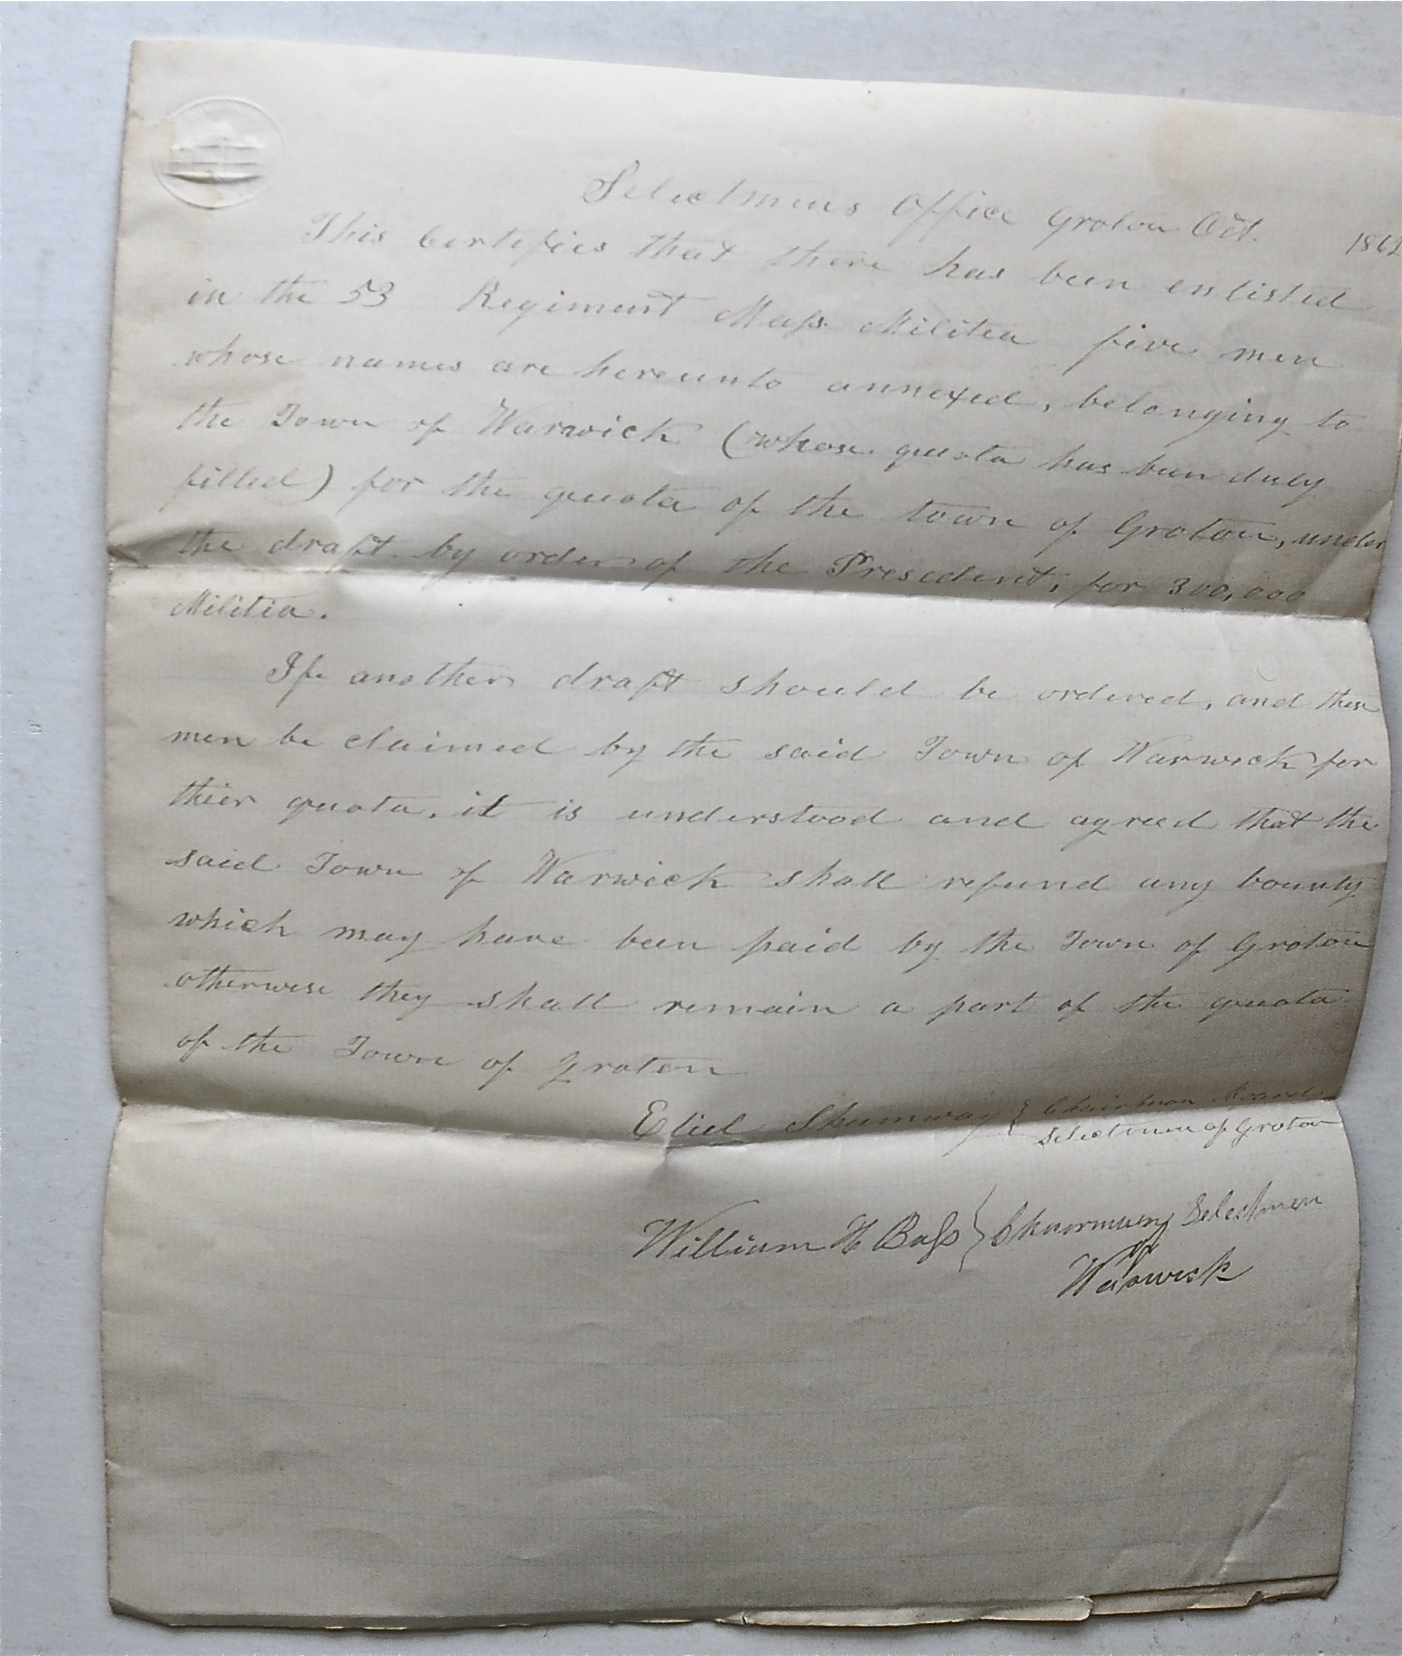 Selectmens Office Groton Oct. 1862
This Certifies that there has been enlisted
in the 53 Regiment Mass. Militia five men
whose names are hereunto annexed, belonging to
the Town of Warwick (whose quota has been duly
filled) for the quota of the town of Groton, under
the draft by order of the President, for 300,000
Militia.
If another draft should be ordered, and these
men be claimed by the said Town of Warwick for
thier quota, it is understood and agreed that the
said Town of Warwick shall refund any bounty
which may have been paid by the Town of Groton
otherwise they shall remain a part of the quota
of the Town of Groton
Eliel Shumway } Chairman Board
Selectmen of Groton
William H Bass } Chairman Selectmen
of
Warwick